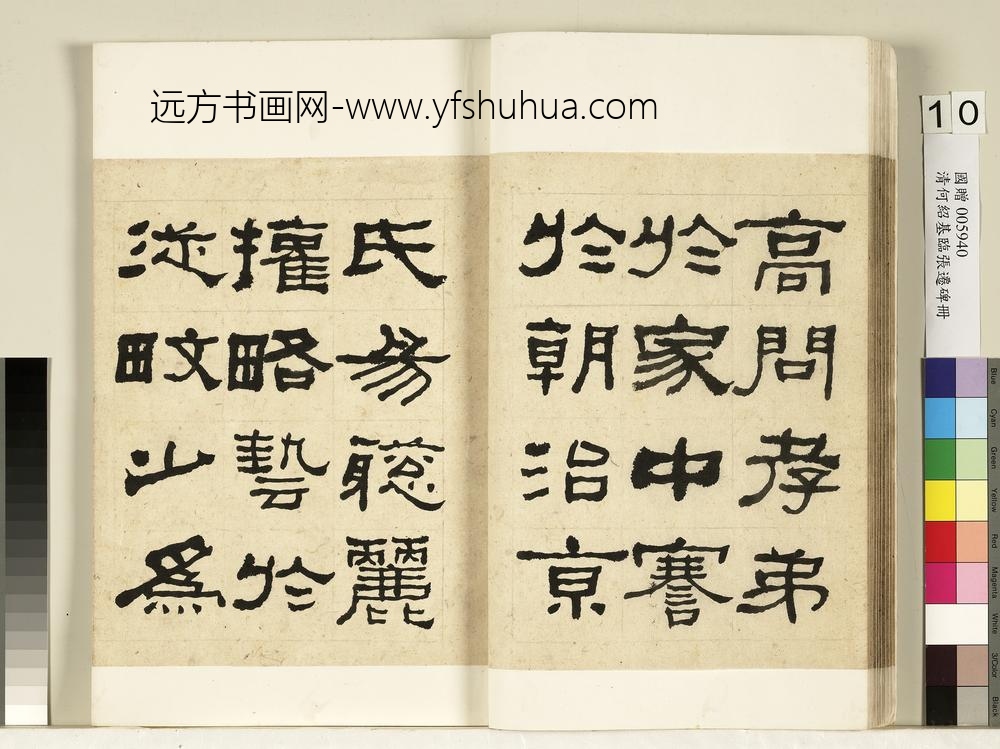 远方书画网-www.yfshuhua.com
高問孝弟
於家中謇
於朝治京
氏易聰麗
權略藝於
從畋少為
10
國贈 005940
清何紹基臨張遷碑冊
Blue
Cyan
Green
Yellow
Red
Magenta
White
3/Color
Black